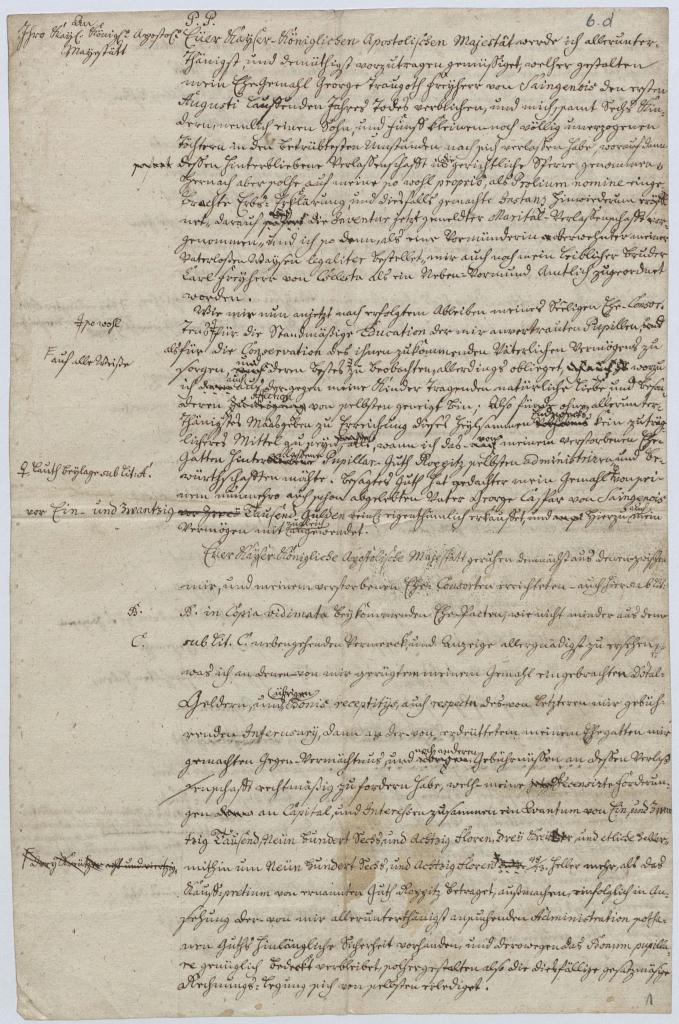 P. P.
6. d
An
Ihro Kayl. Königl. Apostol.
Mayestätt
Euer Kayser-Königlichen Apostolischen Majestät werde ich allerunter-
thänigst, und demüthigst vorzutragen gemüssiget, welcher gestalten
mein Ehe Gemahl George Traugoth Freyherr von Skingenois den ersten
Augusti lauffenden Jahres Todes verblichen, und mich samt Sechs Kin-
dern, nemlich einen Sohn, und fünff kleinen noch völlig unerzogenen
Töchtern in den betrübtesten Umständen nach sich verlassen habe, worauf dann
dessen Hinterbliebene Verlassenschafft in gerichtliche Sperre genommen
hernach aber solche auf meine so wohl proprio, als Prolium nomine einge-
brachte Erbs-Erklärung und diesfalls gemachte Instanz hinwiederum eröff-
net, darauf die Inventur jetzt gemeldter Marital-Verlassenschafft vor-
genommen, und ich so denn, als eine Vormünderin oberwehnter meiner
Vaterlosen Waysen legaliter bestellet, mir auch noch mein leiblicher Bruder
Carl Freyherr von als ein Neben-Vormund Amtlich zugeordnet
worden.
Wie mir nun anjetzt nach erfolgtem Ableiben meines Seeligen Ehe-Consor-
ten für die Standmäßige Education der mir anvertrauten Pupillen,
so wohl
als für die Conservation des ihnen zukommenden Väterlichen Vermögens zu
auf alle Weiße
sorgen, und deren bestes zu beobachten, allerdings oblieget, wozu
ich auch aus der gegen meine Kinder tragenden natürliche Liebe und beson-
deren Affection von selbsten geneigt bin; Also ohne allerunter-
thänigstes Masgeben zu Erreichung dieses heylsammen kein zuträg-
licheres Mittel zu seyn, als, wann ich das von meinem verstorbenen Ehe-
Gatten hinterlassene Pupillar-Guth Roppitz selbsten administriren und be-
würthschafften möchte. Besagtes Guth hat gedachter mein Gemahl von sei-
Lauth beylage sub Lit. A.
nem nunmehro auch schon abgelebten Vater George Caspar von Skingenois
vor Ein- und zwantzig
Tausend Gulden eigenthümlich erkauffet, und hierzu mein
Vermögen mit angewendet.
Euer Kayser-Königliche Apostolische Majestätt geruhen demnächst aus denen zwischen
mir, und meinem verstorbenen Ehe-Consorten errichteten - auch hier sub Lit.
B. B. in Copia vidimata beykommenden Ehe-Pacten, wie nicht minder aus dem
C. sub Lit. C. nebengehenden Vermerck, und Anzeige allergnädigst zu ersehen,
was ich an denen von mir gerügtem meinem Gemahl eingebrachten Dotal-
Geldern, und übrigen Bonis receptitiis, auch respectu des von letzteren mir gebüh-
renden Interusurii, dann an der von erdeuttetem meinem Ehegatten mir
gemachten Gegen-Vermächtnus, und noch anderen Gebührnüssen an dessen Verlas-
senschafft rechtmäßig zu fordern habe, welch meine Forderun-
gen an Capital, und Interessen zusammen ein Quantum von Ein, und Zwan-
tzig Tausend, Neun hundert Sechs, und Achtzig Floren, drey, und etliche heller
mithin um Neun hundert Sechs, und Achtzig Floren heller mehr, als das
Kauffs-pretium von ernannten Guth Roppitz betraget, ausmachen, einfolglich in An-
sehung der von mir allerunterthänigst ansuchenden Administration sotha-
nen Guths hinlängliche Sicherheit vorhanden, und derowegen das Bonum pupilla-
re genüglich bedeckt verbleibet, solcher gestalten also die diesfällige gesätzmäßige
Rechnungs-Legung sich von selbsten erlediget.